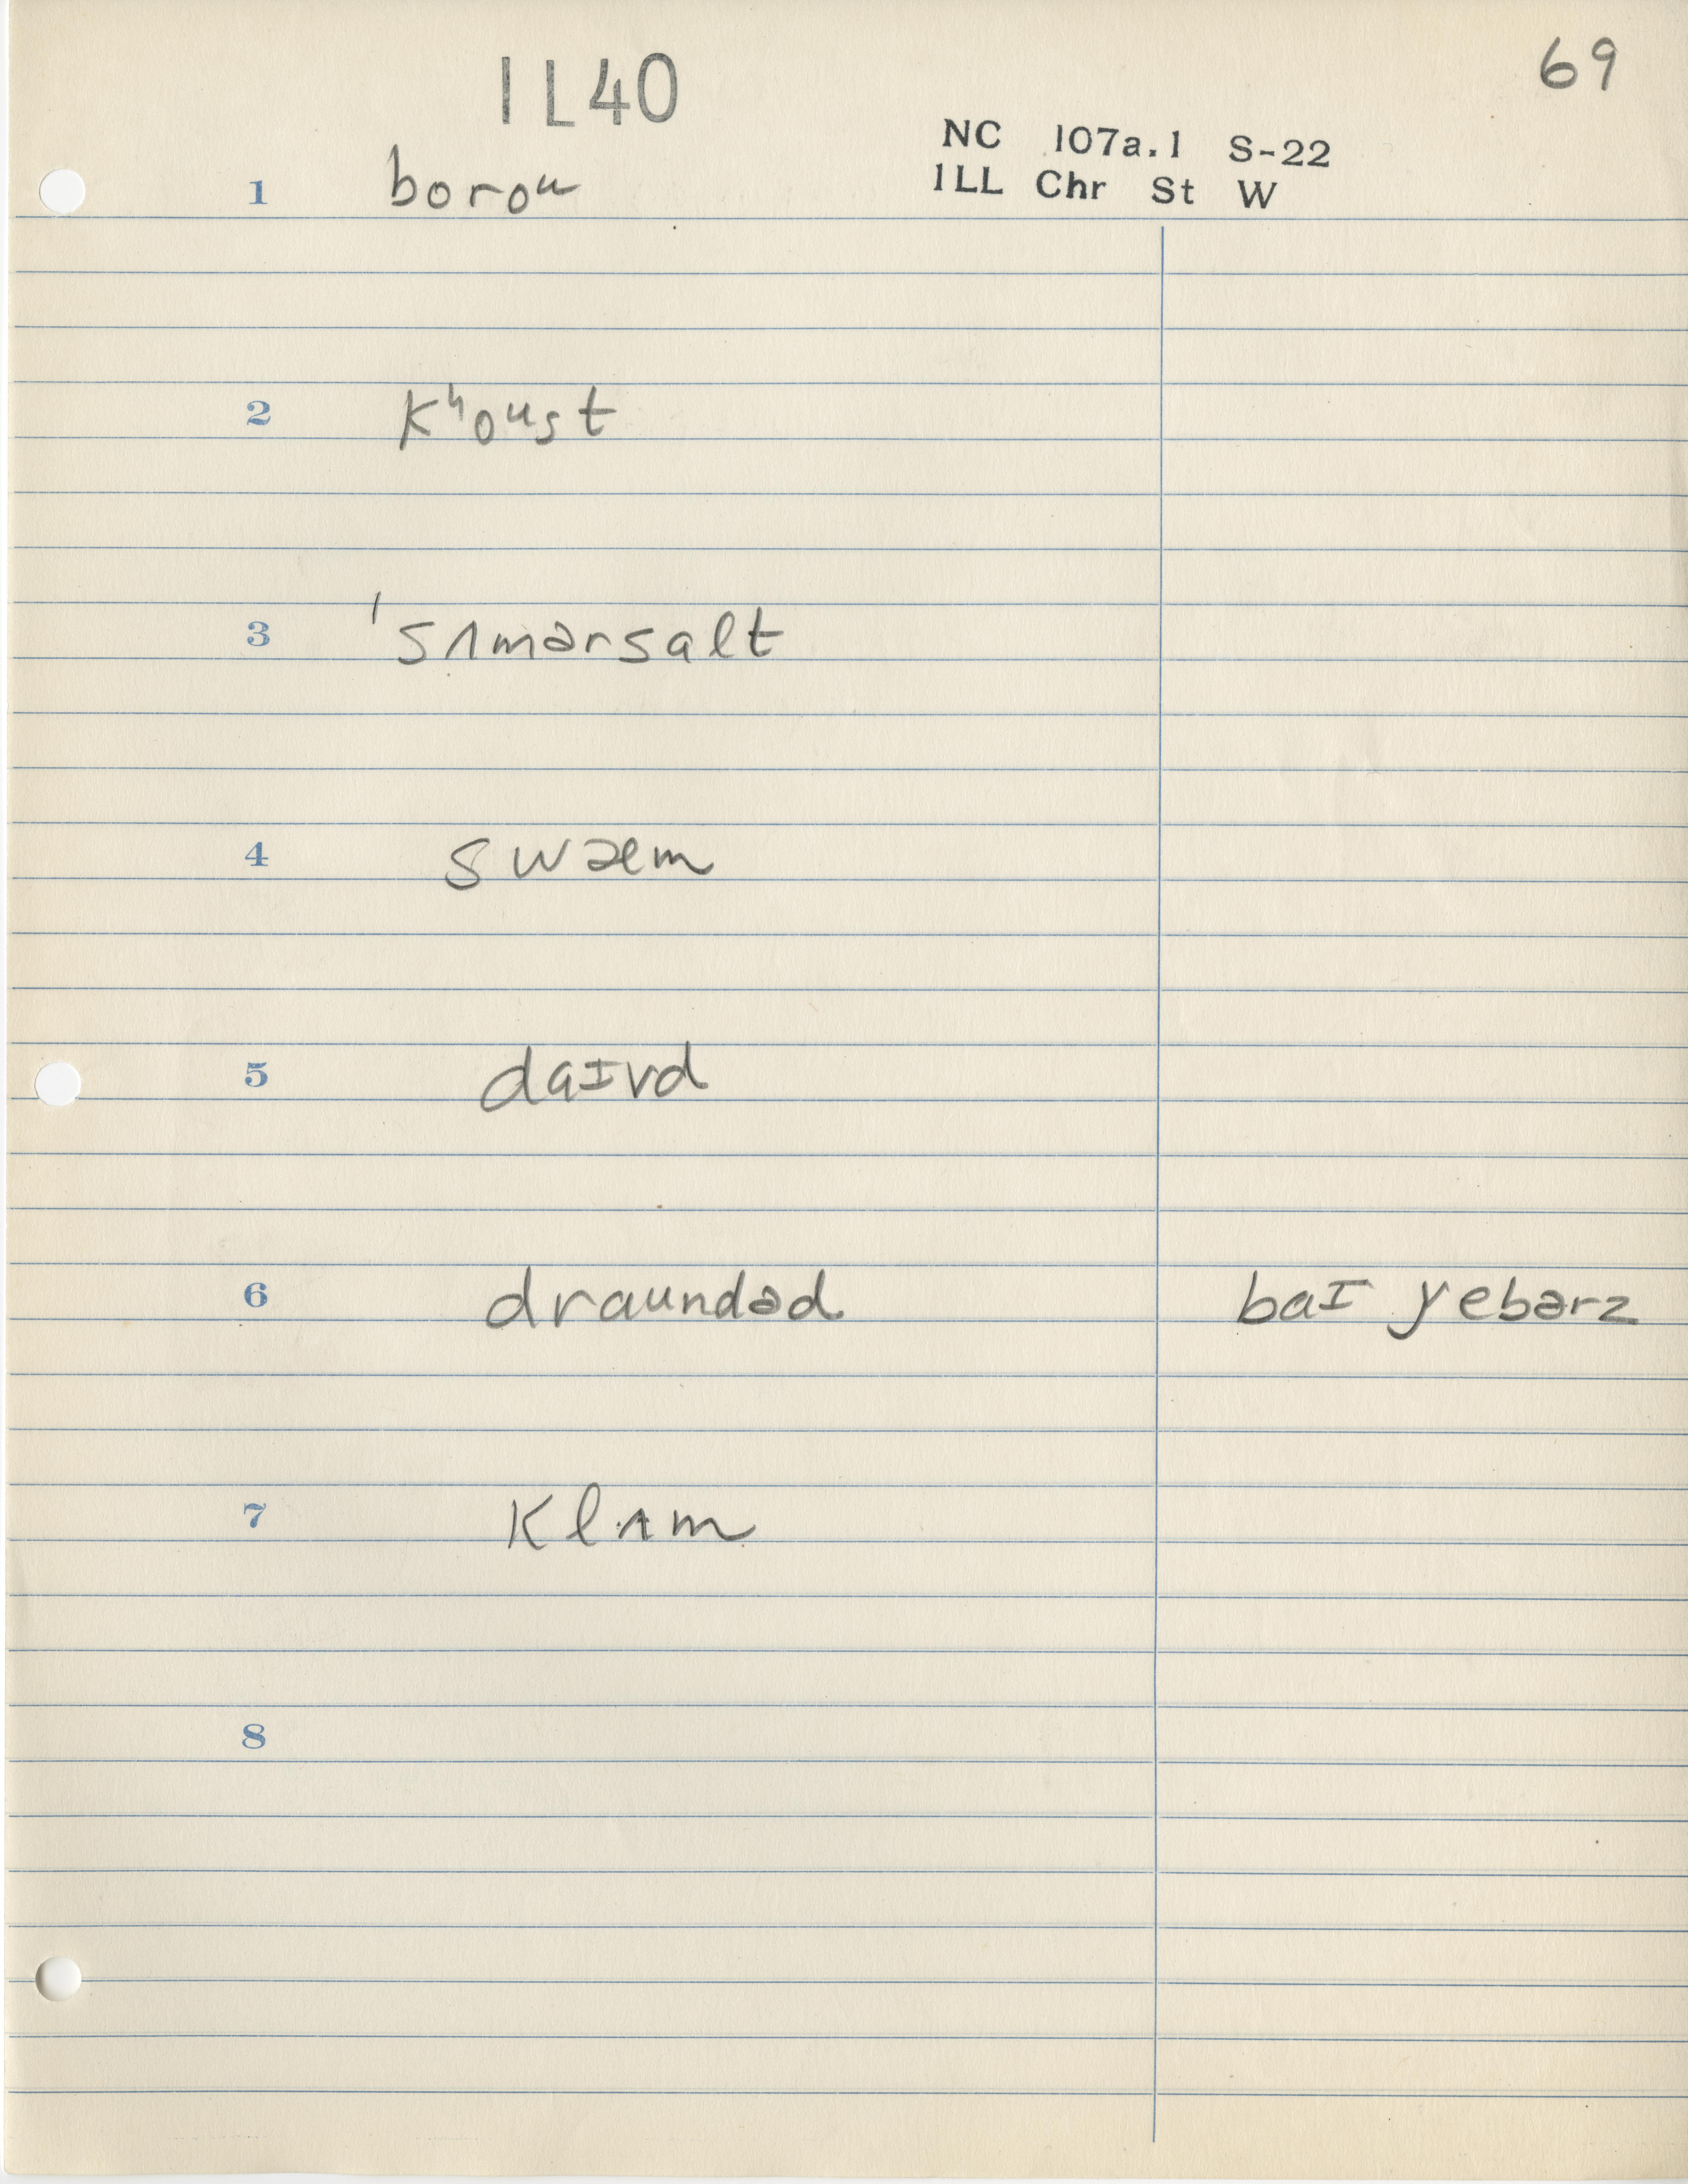 IL40
69
NC 107a.1 S-22
ILL Chr St W
1 boroᵘ
2 Kʰoᵘst
3 ˈsʌmərsalt
4 swæm
5 daɪvd
6 draundəd baɪ yebərz
7 klʌm
8